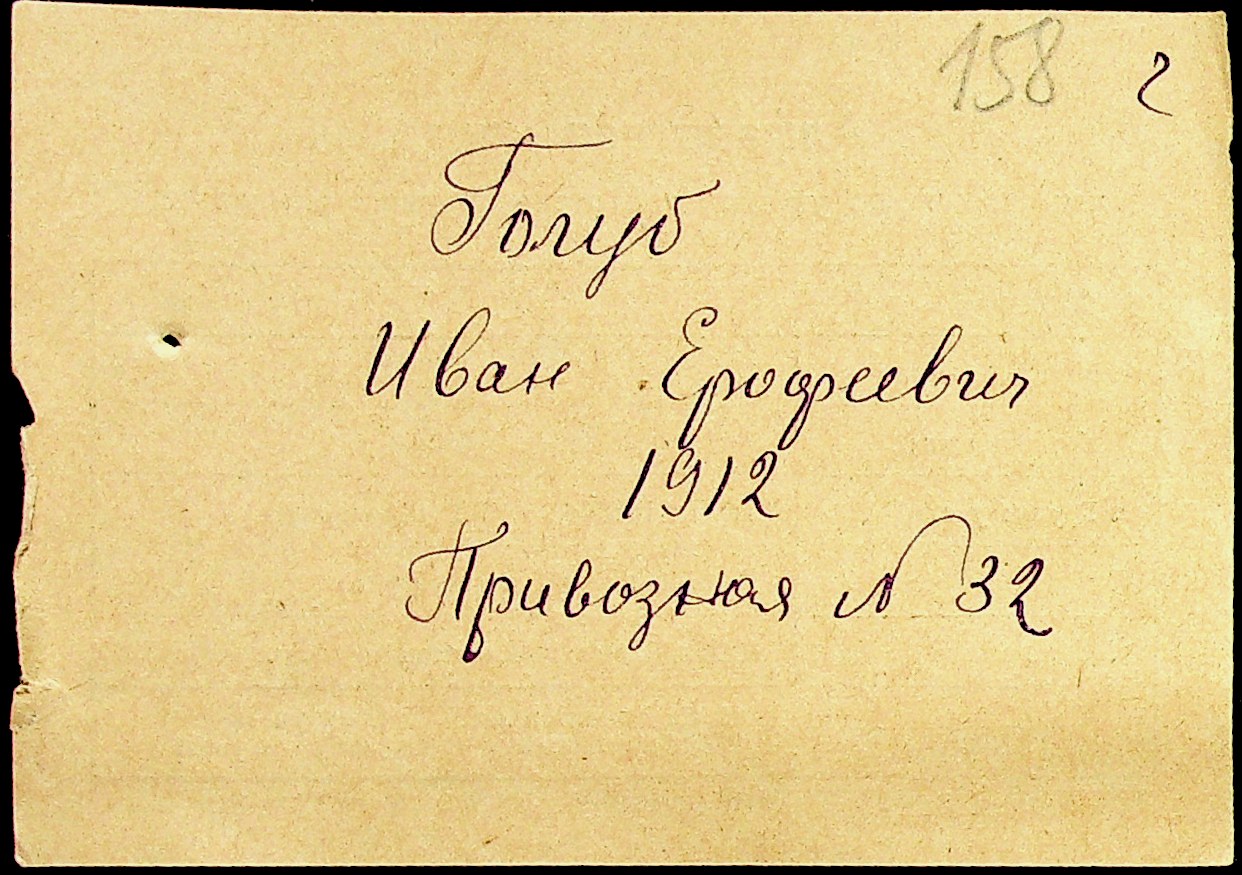 158 г
Голуб
Иван Ерофеевич
1912
Привозная № 32